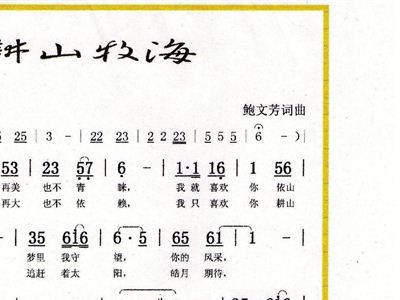 耕山牧海
鲍文芳词曲
5 25 | 3 - | 22 23 | 2 2 23 | 5 5 5 | 6 - )
53 | 23 57 | 6 - | 1·1 16 | 1 56 |
再美 也不青 睐， 我就喜欢 你依山
再大 也不依 赖， 我只喜欢 你耕山
- | 35 616 | 6·5 | 65 61 | 1 - |
梦里我守 望， 你的风采，
追赶着太 阳， 皓月期待，